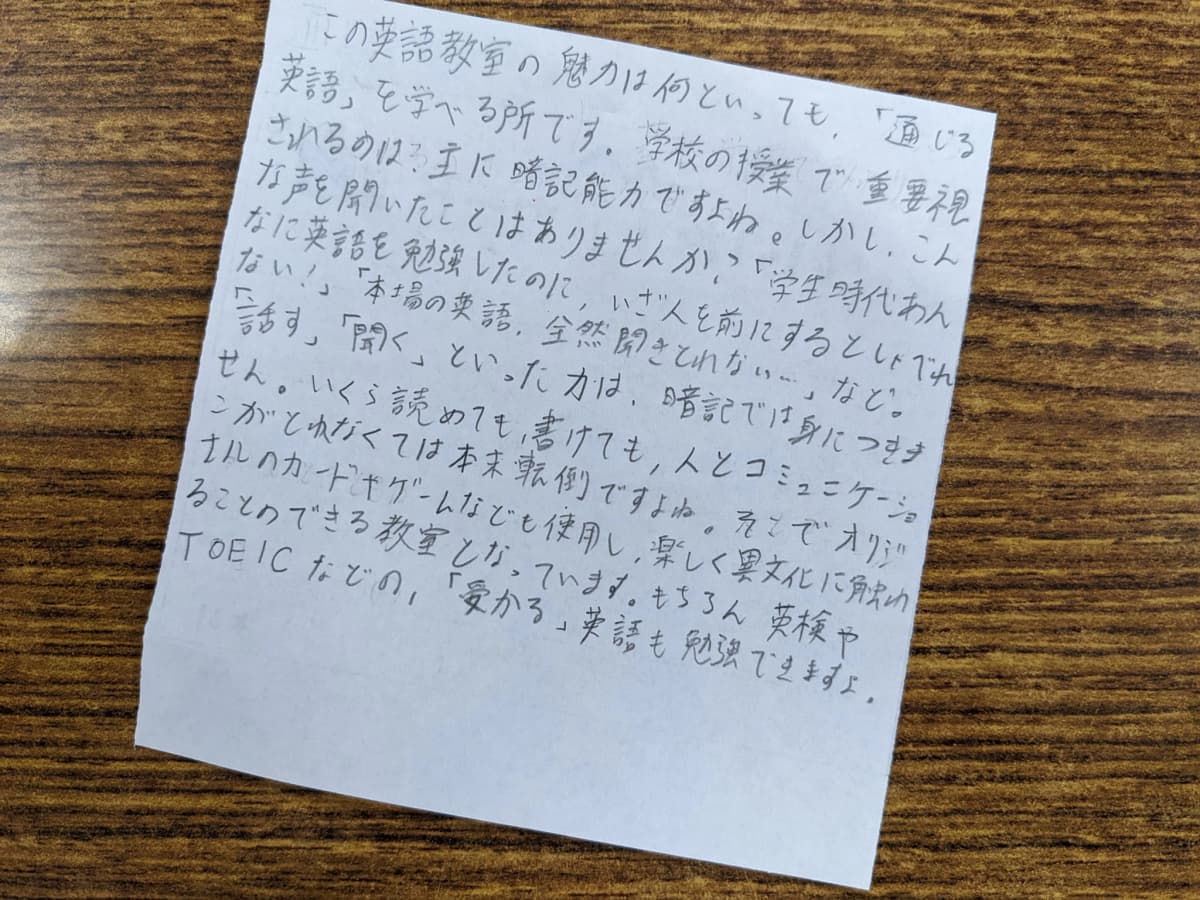 この英語教室の魅力は何といっても,「通じる
英語」を学べる所です。学校の授業で重要視
されるのは,主に暗記能力ですよね。しかし,こん
な声を聞いたことはありませんか?「学生時代あん
なに英語を勉強したのに,いざ人を前にするとしゃべれ
ない!」「本場の英語,全然聞きとれない…」など。
「話す」「聞く」といった力は,暗記では身につきま
せん。いくら読めても,書けても,人とコミュニケーショ
ンがとれなくては本末転倒ですよね。そこでオリジ
ナルのカードやゲームなども使用し,楽しく異文化に触れ
ることのできる教室となっています。もちろん英検や
TOEICなどの,「受かる」英語も勉強できますよ。